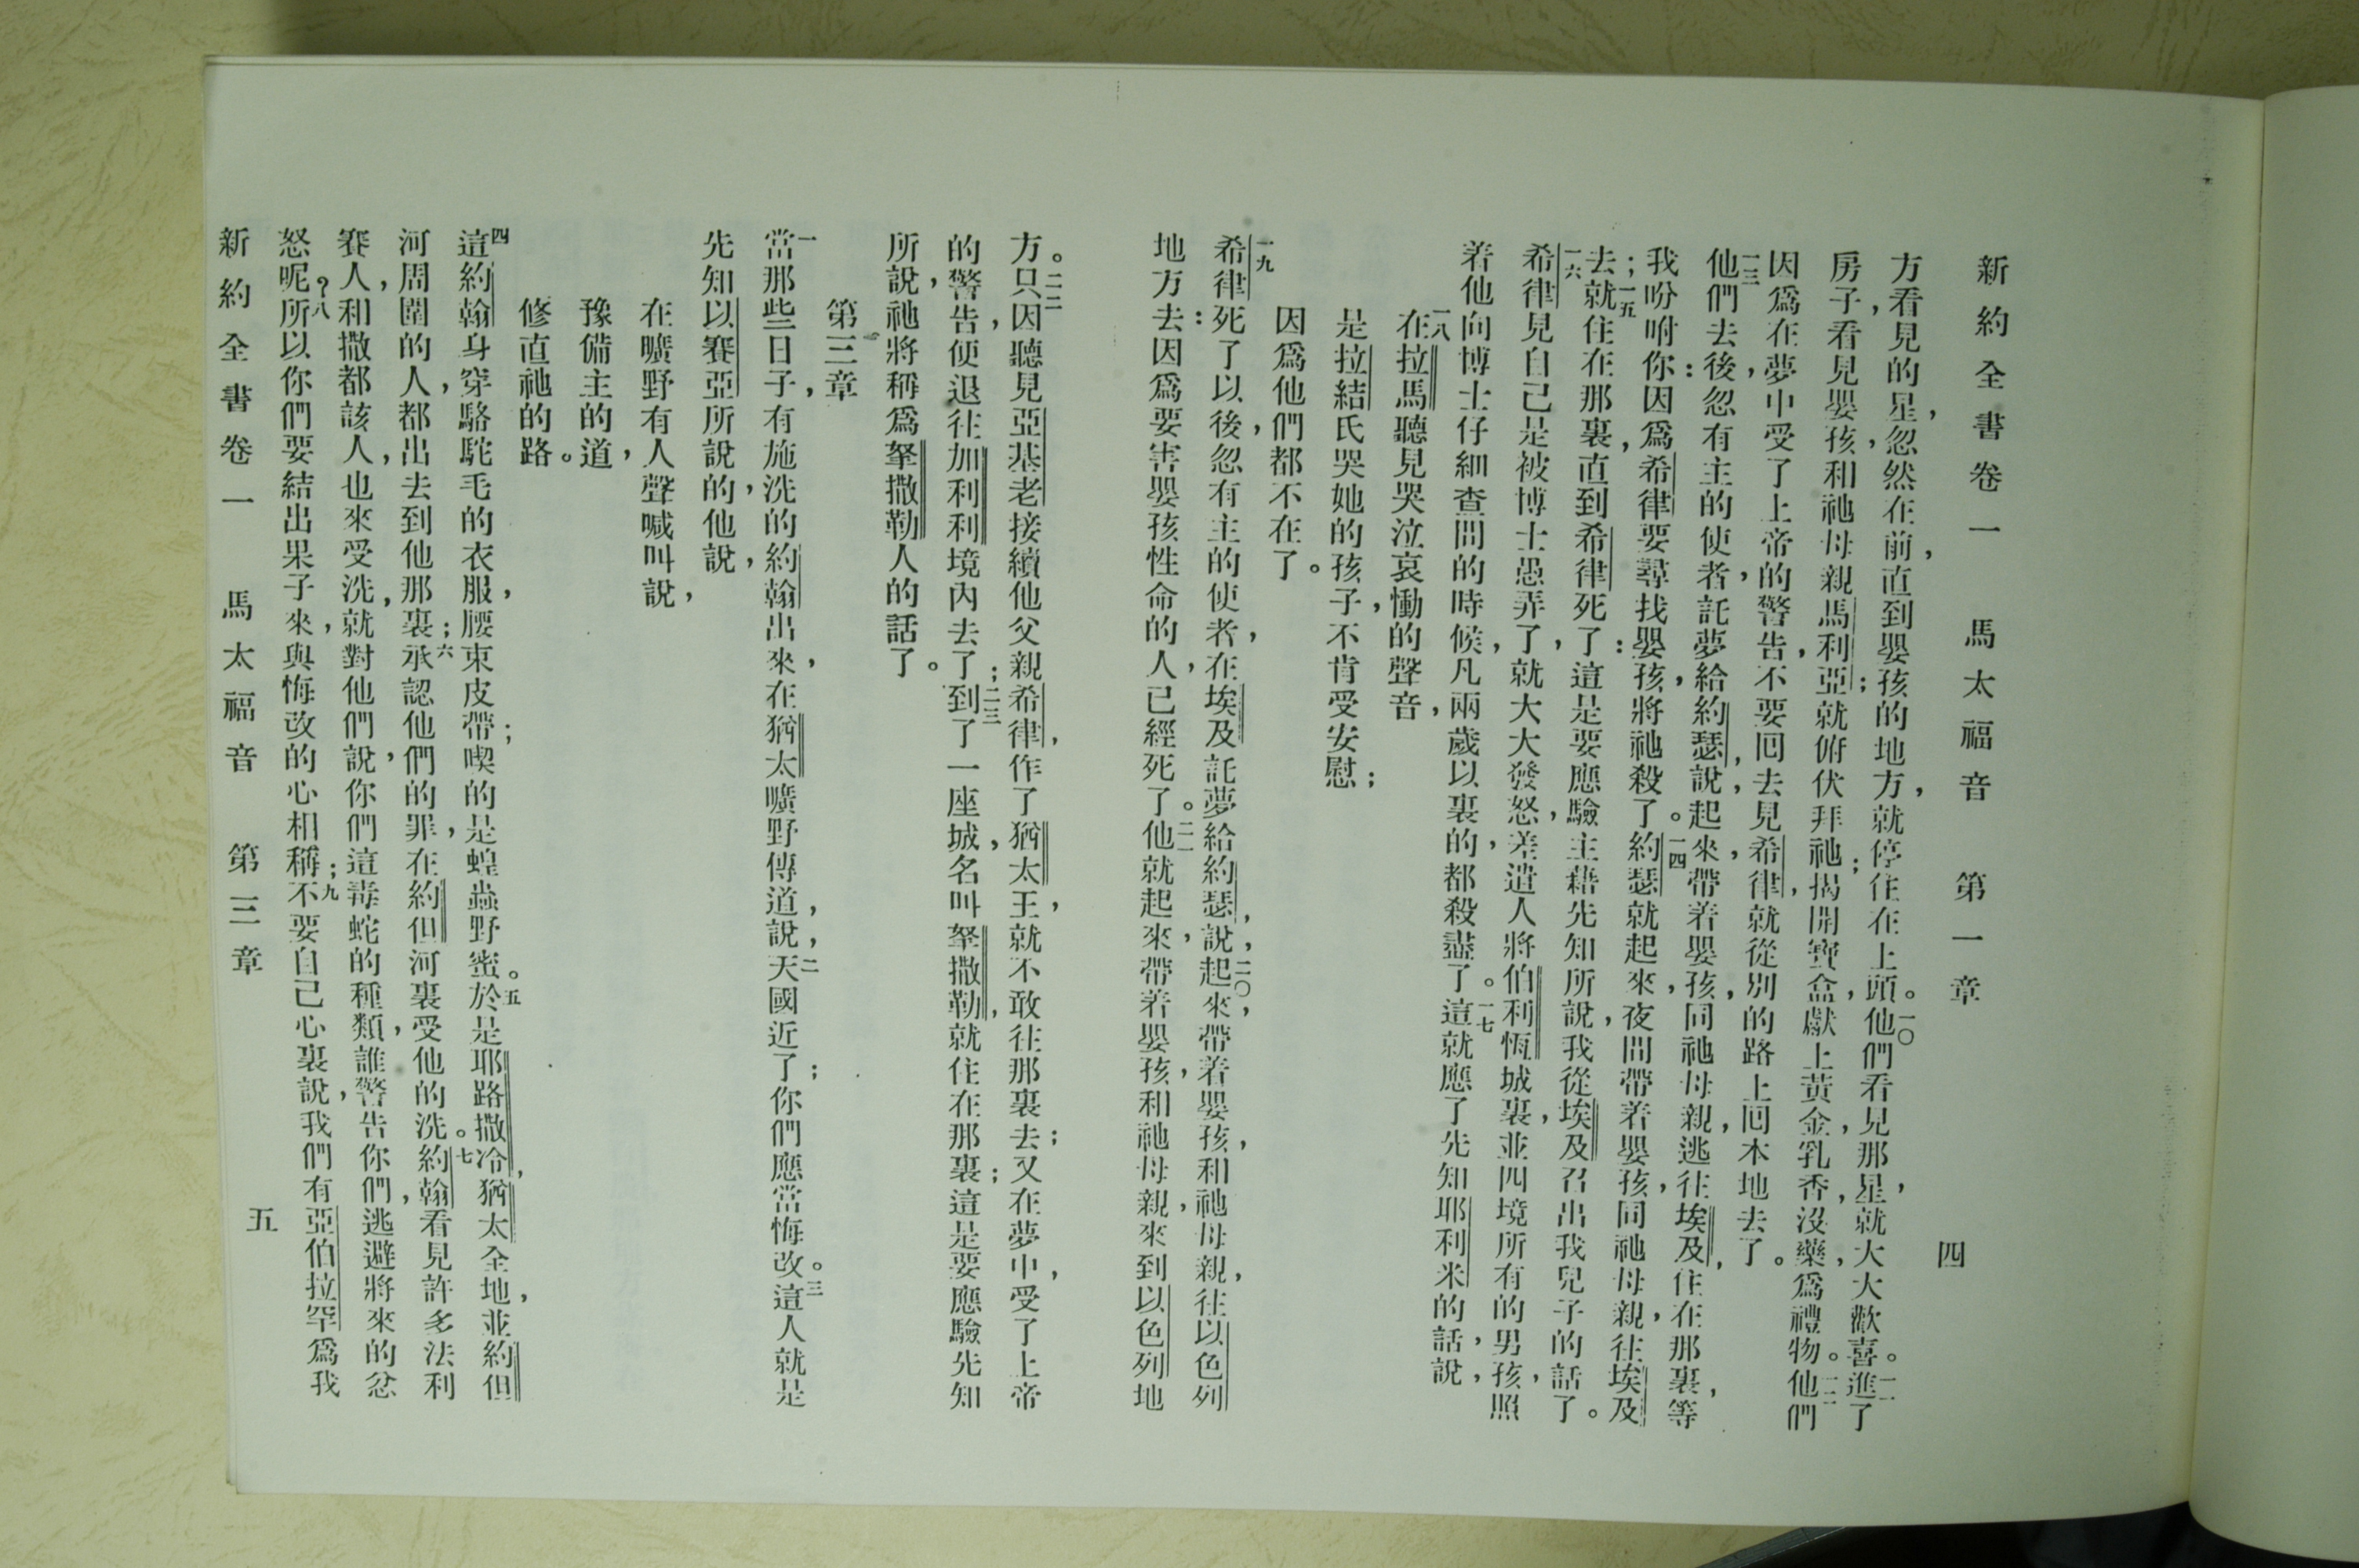 新約全書卷一　馬太福音　第一章　四
方看見的星，忽然在前，直到嬰孩的地方，就停住在上頭。一〇他們看見那星，就大大歡喜。一一進了
房子，看見嬰孩，和祂母親馬利亞；就俯伏拜祂；揭開寶盒，獻上黃金，乳香，沒藥，爲禮物。一二他們
因爲在夢中受了上帝的警告，不要囘去見希律，就從別的路上囘本地去了。
一三他們去後，忽有主的使者，託夢給約瑟，說，起來，帶着嬰孩，同祂母親，逃往埃及，住在那裏，等
我吩咐你：因爲希律要尋找嬰孩，將祂殺了。一四約瑟就起來，夜間帶着嬰孩，同祂母親，往埃及
去；一五就住在那裏，直到希律死了：這是要應驗主藉先知所說，我從埃及召出我兒子的話了。
一六希律見自己是被博士愚弄了，就大大發怒，差遣人將伯利恆城裏，並四境所有的男孩，照
着他向博士仔細查問的時候，凡兩歲以裏的，都殺盡了。一七這就應了先知耶利米的話，說，
一八在拉馬聽見哭泣哀慟的聲音，
是拉結氏哭她的孩子，不肯受安慰；
因爲他們都不在了。
一九希律死了以後，忽有主的使者，在埃及託夢給約瑟，說，二〇起來，帶着嬰孩，和祂母親，往以色列
地方去：因爲要害嬰孩性命的人，已經死了。二一他就起來，帶着嬰孩，和祂母親，來到以色列地
方。二二只因聽見亞基老接續他父親希律，作了猶太王，就不敢往那裏去；又在夢中，受了上帝
的警告，便退往加利利境內去了；二三到了一座城，名叫拏撒勒，就住在那裏；這是要應驗先知
所說，祂將稱爲拏撒勒人的話了。
第三章
一當那些日子，有施洗的約翰出來，在猶太曠野傳道，說，二天國近了；你們應當悔改。三這人就是
先知以賽亞所說的，他說，
在曠野有人聲喊叫說，
豫備主的道，
修直祂的路。
四這約翰身穿駱駝毛的衣服，腰束皮帶；喫的是蝗蟲野蜜。五於是耶路撒冷，猶太全地，並約但
河周圍的人，都出去到他那裏；六承認他們的罪，在約但河裏受他的洗。七約翰看見許多法利
賽人，和撒都該人，也來受洗，就對他們說，你們這毒蛇的種類，誰警告你們，逃避將來的忿
怒呢？八所以你們要結出果子來，與悔改的心相稱；九不要自己心裏說，我們有亞伯拉罕爲我
新約全書卷一　馬太福音　第三章　五